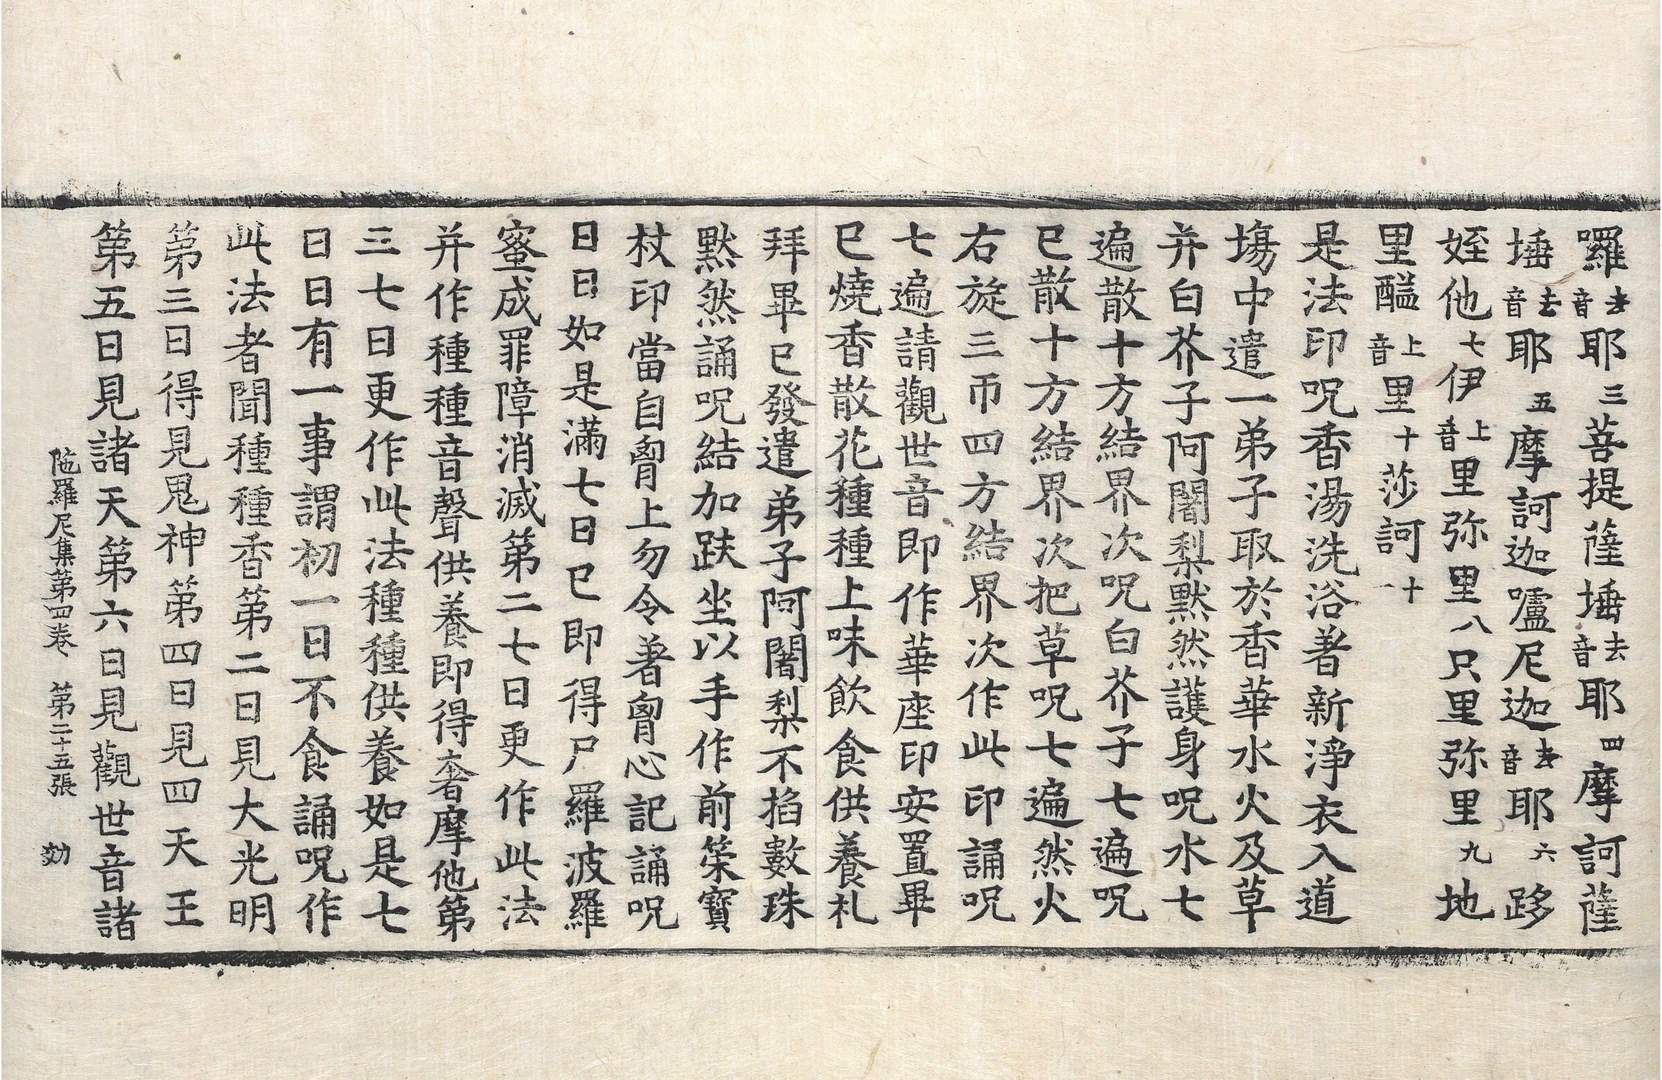 囉去音耶三菩提薩埵去音耶四摩訶薩
埵去音耶五摩訶迦嚧尼迦去音耶六跢
姪他七伊上音里弥里八只里弥里九地
里醯上音里十莎訶十一
是法印呪香湯洗浴著新淨衣入道
場中遣一弟子取於香華水火及草
并白芥子阿闍梨黙然護身呪水七
遍散十方結界次呪白芥子七遍呪
已散十方結界次把草呪七遍然火
右旋三帀四方結界次作此印誦呪
七遍請觀世音即作華座印安置畢
已燒香散花種種上味飲食供養礼
拜畢已發遣弟子阿闍梨不掐數珠
黙然誦呪結加趺坐以手作前䇿寶
杖印當自胷上勿令著胷心記誦呪
日日如是滿七日已即得尸羅波羅
蜜成罪障消滅第二七日更作此法
并作種種音聲供養即得奢摩他第
三七日更作此法種種供養如是七
日日有一事謂初一日不食誦呪作
此法者聞種種香第二日見大光明
第三日得見鬼神第四日見四天王
第五日見諸天第六日見觀世音諸
陁羅尼集第四卷 第二十五張 効